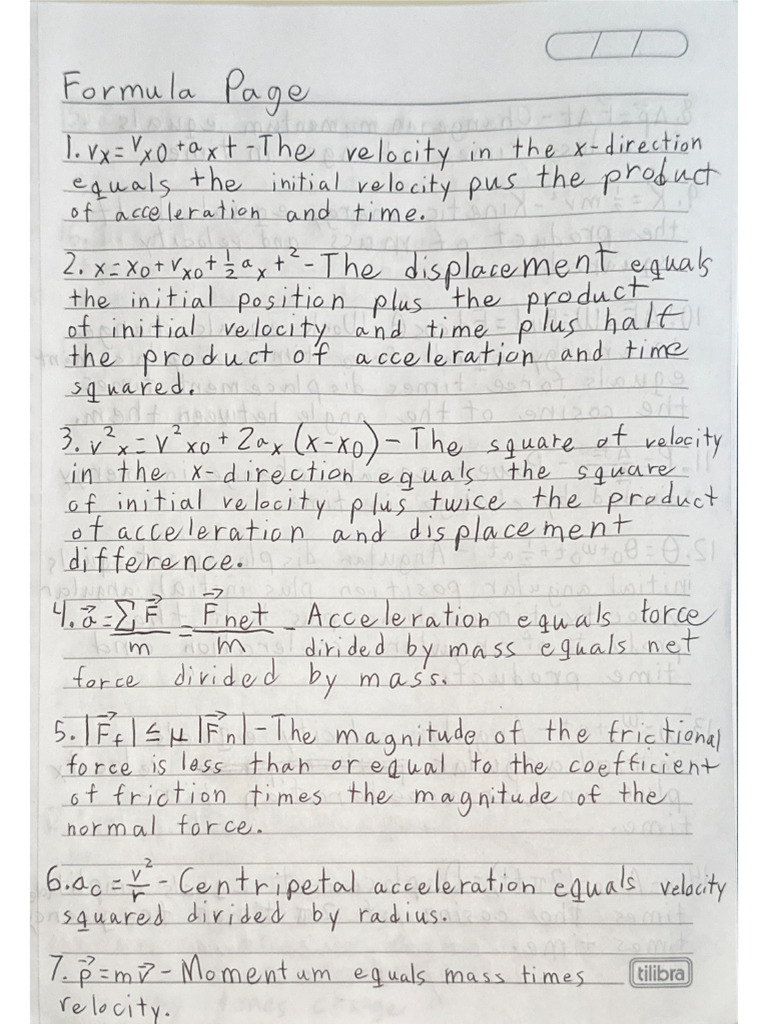 Formula Page
1. vx = vx0 + axt - The velocity in the x-direction
equals the initial velocity pus the product
of acceleration and time.
2. x = x0 + vx0 + ½ axt² - The displacement equals
the initial position plus the product
of initial velocity and time plus half
the product of acceleration and time
squared.
3. v²x = v²x0 + 2ax (x-x0) - The square of velocity
in the x-direction equals the square
of initial velocity plus twice the product
of acceleration and displacement
difference.
4. a⃗ = ΣF⃗/m = F⃗net/m - Acceleration equals force
divided by mass equals net
force divided by mass.
5. |F⃗f| ≤ μ |F⃗n| - The magnitude of the frictional
force is less than or equal to the coefficient
of friction times the magnitude of the
normal force.
6. ac = v²/r - Centripetal acceleration equals velocity
squared divided by radius.
7. p⃗ = mv⃗ - Momentum equals mass times
velocity.
tilibra